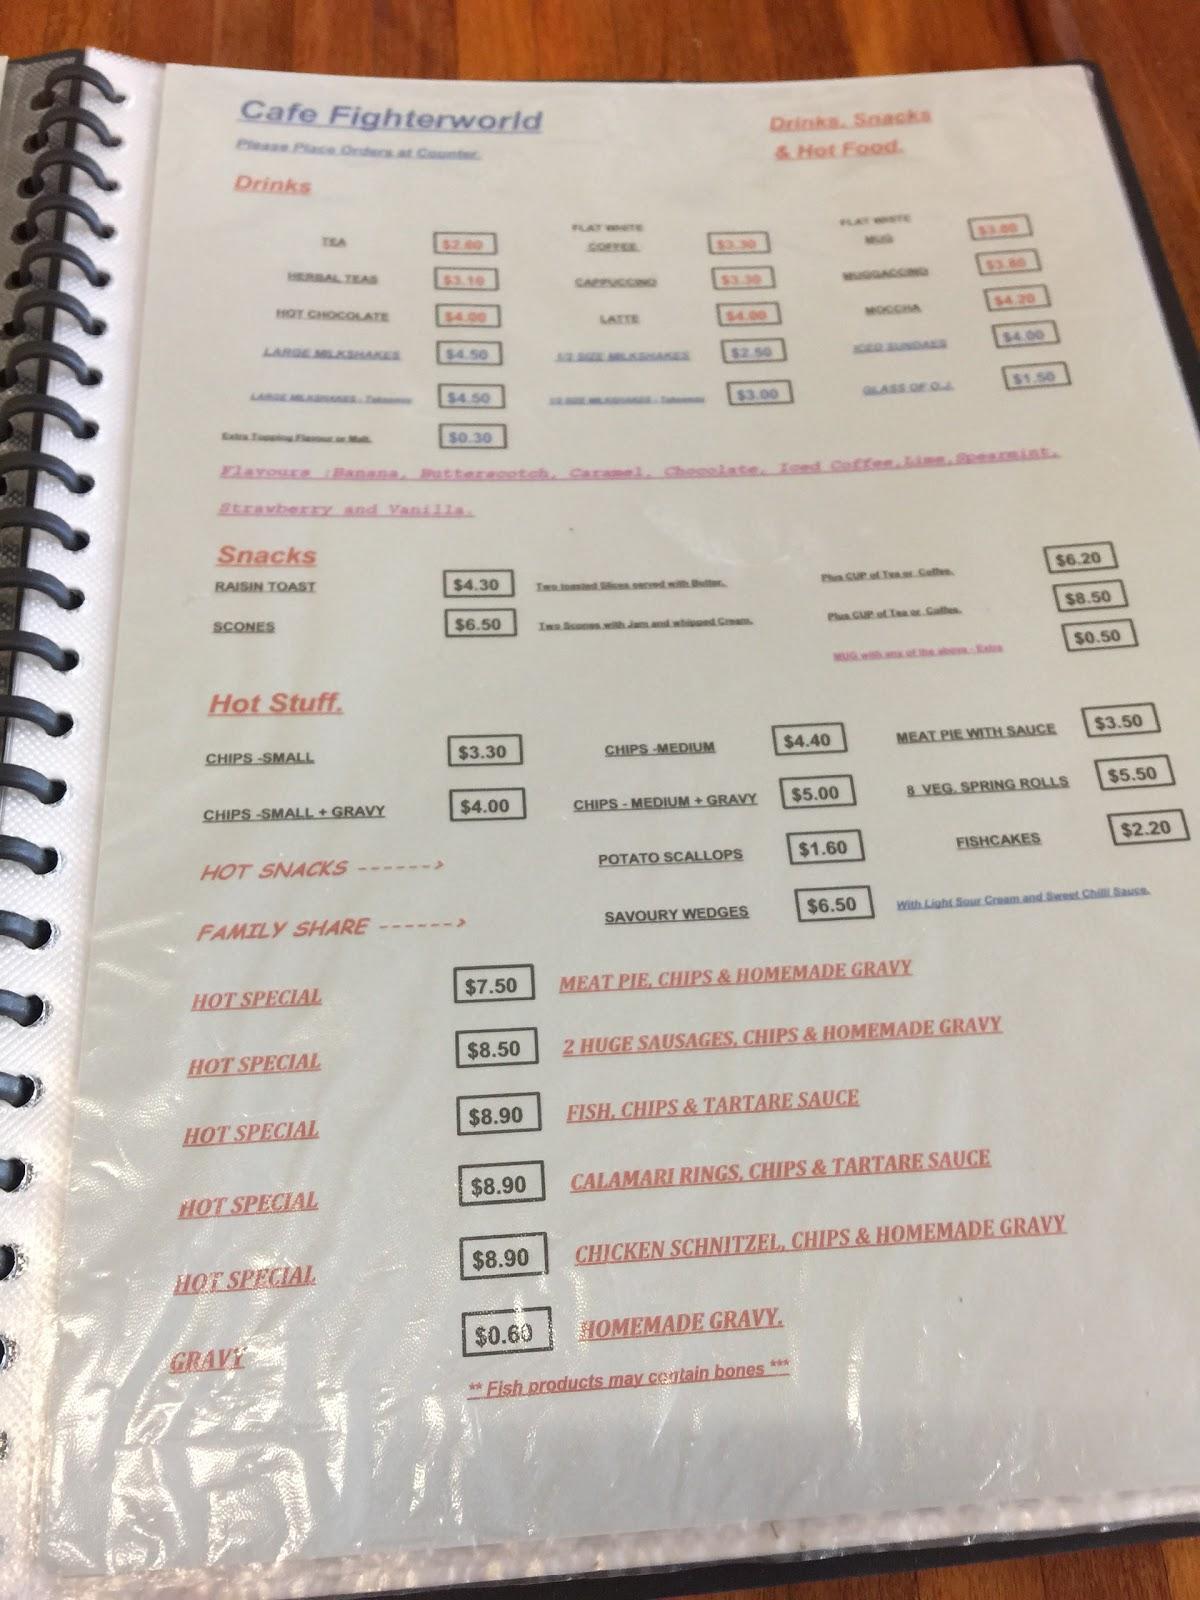 Cafe Fighterworld
Drinks, Snacks
& Hot Food.
Please Place Orders at Counter.
Drinks
TEA $2.60 FLAT WHITE COFFEE $3.30 FLAT WHITE MUG
HERBAL TEAS $3.10 CAPPUCCINO $3.30 MUGGACCINO $3.80
HOT CHOCOLATE $4.00 LATTE $4.00 MOCCHA $4.20
LARGE MILKSHAKES $4.50 1/2 SIZE MILKSHAKES $2.50 ICED SUNDAES $4.00
LARGE MILKSHAKES - Takeaway $4.50 1/2 SIZE MILKSHAKES - Takeaway $3.00 GLASS OF O.J. $1.50
Extra Topping Flavour or Malt. $0.30
Flavours :Banana, Butterscotch, Caramel, Chocolate, Iced Coffee,Lime,Spearmint,
Strawberry and Vanilla.
Snacks
RAISIN TOAST $4.30 Two toasted Slices served with Butter. Plus CUP of Tea or Coffee. $6.20
SCONES $6.50 Two Scones with Jam and whipped Cream. Plus CUP of Tea or Coffee. $8.50
MUG with any of the above - Extra $0.50
Hot Stuff.
CHIPS -SMALL $3.30 CHIPS -MEDIUM $4.40 MEAT PIE WITH SAUCE $3.50
CHIPS -SMALL + GRAVY $4.00 CHIPS - MEDIUM + GRAVY $5.00 8 VEG. SPRING ROLLS $5.50
HOT SNACKS ------> POTATO SCALLOPS $1.60 FISHCAKES $2.20
FAMILY SHARE ------> SAVOURY WEDGES $6.50 With Light Sour Cream and Sweet Chilli Sauce.
HOT SPECIAL $7.50 MEAT PIE, CHIPS & HOMEMADE GRAVY
HOT SPECIAL $8.50 2 HUGE SAUSAGES, CHIPS & HOMEMADE GRAVY
HOT SPECIAL $8.90 FISH, CHIPS & TARTARE SAUCE
HOT SPECIAL $8.90 CALAMARI RINGS, CHIPS & TARTARE SAUCE
HOT SPECIAL $8.90 CHICKEN SCHNITZEL, CHIPS & HOMEMADE GRAVY
GRAVY $0.60 HOMEMADE GRAVY.
** Fish products may contain bones ***